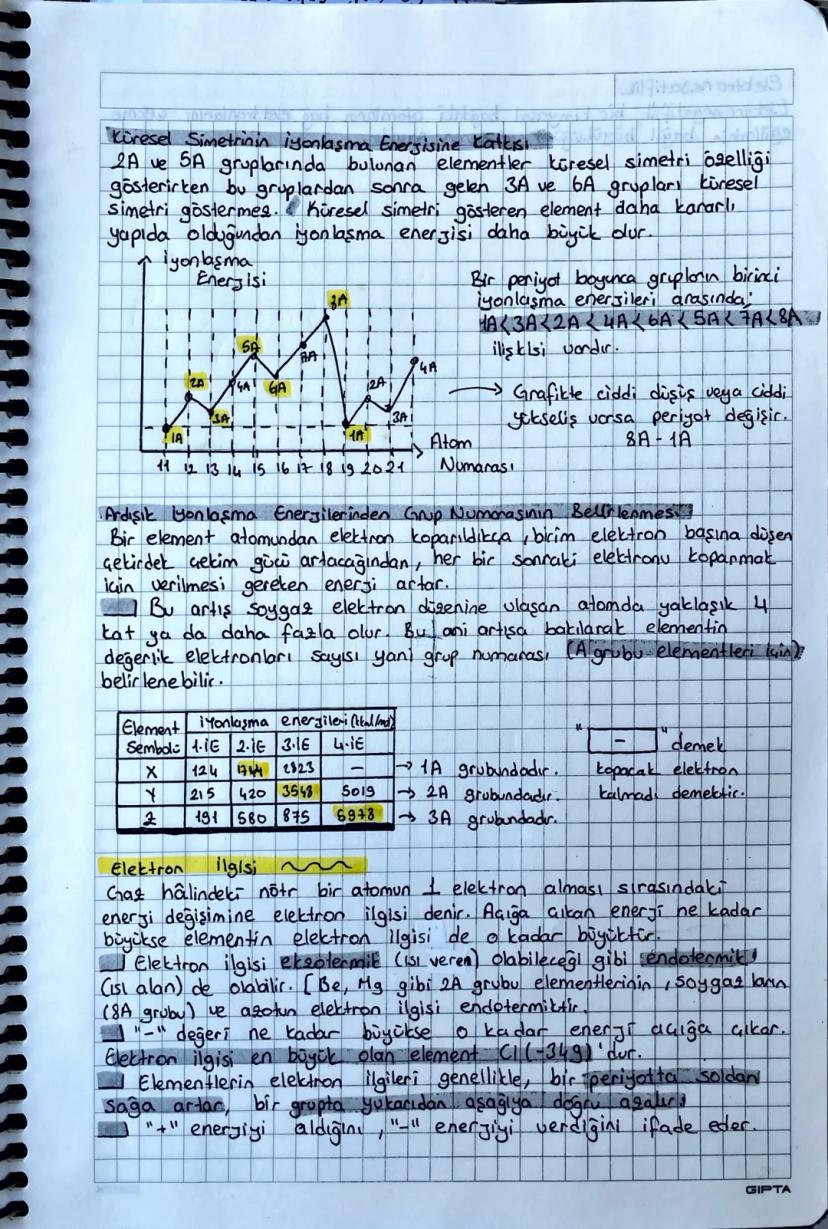 Küresel Simetrinin İyonlaşma Enerjisine Katkısı
2A ve 5A gruplarında bulunan elementler küresel simetri özelliği
gösterirken bu gruplardan sonra gelen 3A ve 6A grupları küresel
simetri göstermez. Küresel simetri gösteren element daha kararlı
yapıda olduğundan iyonlaşma enerjisi daha büyük olur.
İyonlaşma
Enerjisi
1A 2A 3A 4A 5A 6A 7A 8A 1A 2A 3A 4A
11 12 13 14 15 16 17 18 19 20 21
Atom
Numarası
Bir periyot boyunca grupların birinci
iyonlaşma enerjileri arasında;
1A<3A<2A<4A<6A<5A<7A<8A
ilişkisi vardır.
Grafikte ciddi düşüş veya ciddi
yükseliş varsa periyot değişir.
8A-1A
Ardışık İyonlaşma Enerjilerinden Grup Numarasının Belirlenmesi
Bir element atomundan elektron koparıldıkça, birim elektron başına düşen
çekirdek çekim gücü artacağından, her bir sonraki elektronu koparmak
için verilmesi gereken enerji artar.
Bu artış soygaz elektron düzenine ulaşan atomda yaklaşık 4
kat ya da daha fazla olur. Bu ani artışa bakılarak elementin
değerlik elektronları sayısı yani grup numarası (A grubu elementleri için)
belirlenebilir.
Element Sembolü İyonlaşma energileri (kkal/mol)
1.İE 2.İE 3.İE 4.İE
X 124 1744 2823 — → 1A grubundadır.
Y 215 420 3548 5019 → 2A grubundadır.
Z 191 580 875 6978 → 3A grubundadır.
" - " demek
kopacak elektron
kalmadı demektir.
Elektron ilgisi
Gaz hâlindeki nötr bir atomun 1 elektron alması sırasındaki
enerji değişimine elektron ilgisi denir. Açığa çıkan enerji ne kadar
büyükse elementin elektron ilgisi de o kadar büyüktür.
Elektron ilgisi ekzotermik (ısı veren) olabileceği gibi endotermik
(ısı alan) de olabilir. [Be, Mg gibi 2A grubu elementlerinin, soygazların
(8A grubu) ve azotun elektron ilgisi endotermiktir.
"-" değeri ne kadar büyükse o kadar enerji açığa çıkar.
Elektron ilgisi en büyük olan element Cl (-349)'dur.
Elementlerin elektron ilgileri genellikle, bir periyotta soldan
sağa artar, bir grupta yukarıdan aşağıya doğru azalır.
"+" enerjiyi aldığını, "-" enerjiyi verdiğini ifade eder.
GIPTA